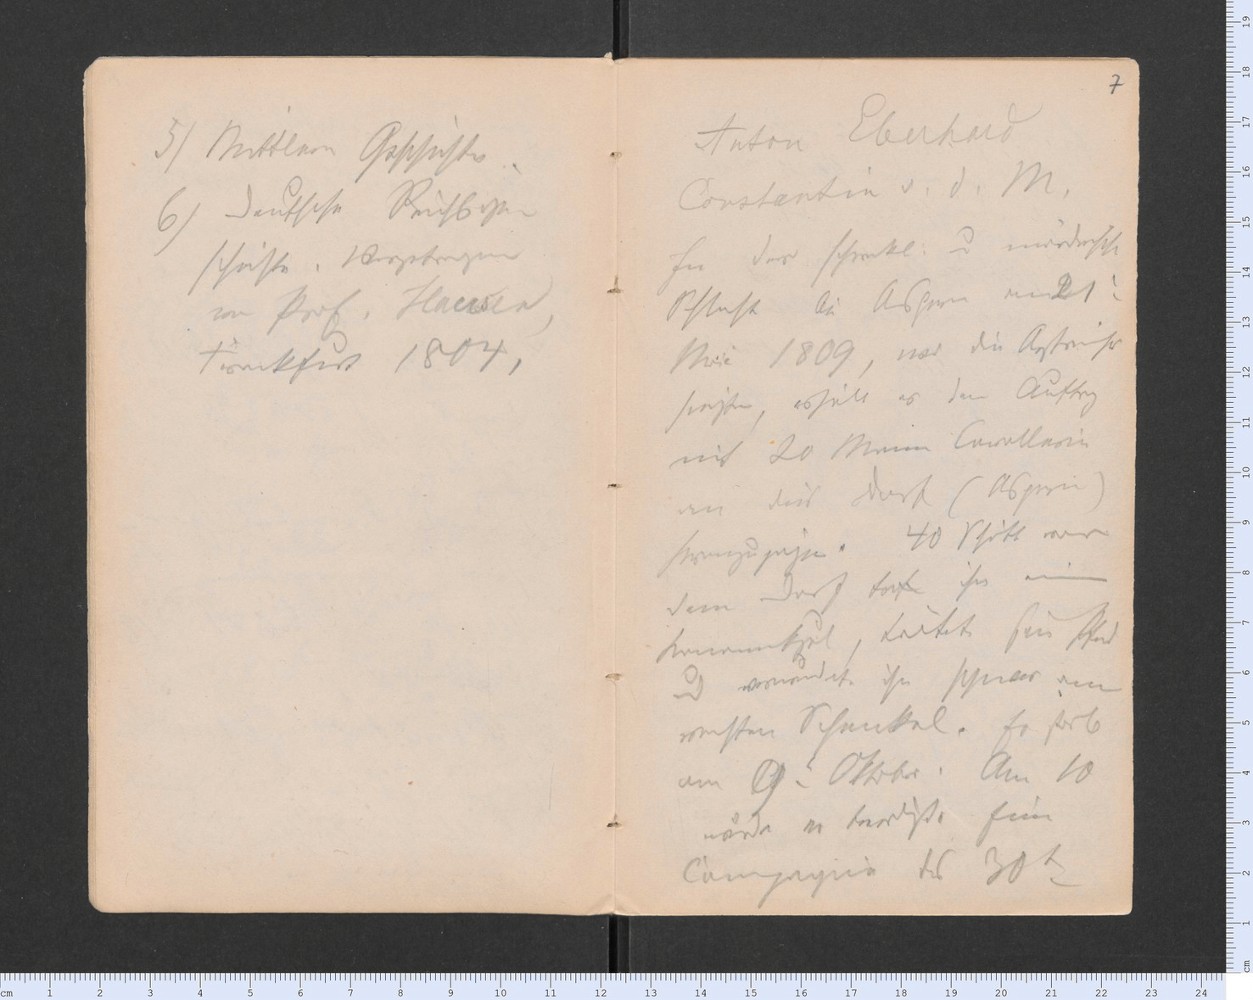 5) Mittlere Geschichte.
6) Deutsche Reichsge-
schichte. Vorgetragen
von Prof. Hausen,
Frankfurt 1804,
7
Anton Eberhard
Constantin v. d. M.
In der schreckl. u mördrischen
Schlacht bei Aspern am 21t
Mai 1809, wo die Östreicher
siegten, erhielt er den Auftrag
mit 20 Mann Cavallerie
an das Dorf (Aspern)
heranzujagen. 40 Schritt von
dem Dorf traf ihn eine
Kanonenkugel, tödtete sein Pferd
u verwundete ihn schwer am
rechten Schenkel. Er starb
am 9t Oktober. Am 10
wurde er beerdigt. Eine
Compagnie des 30t